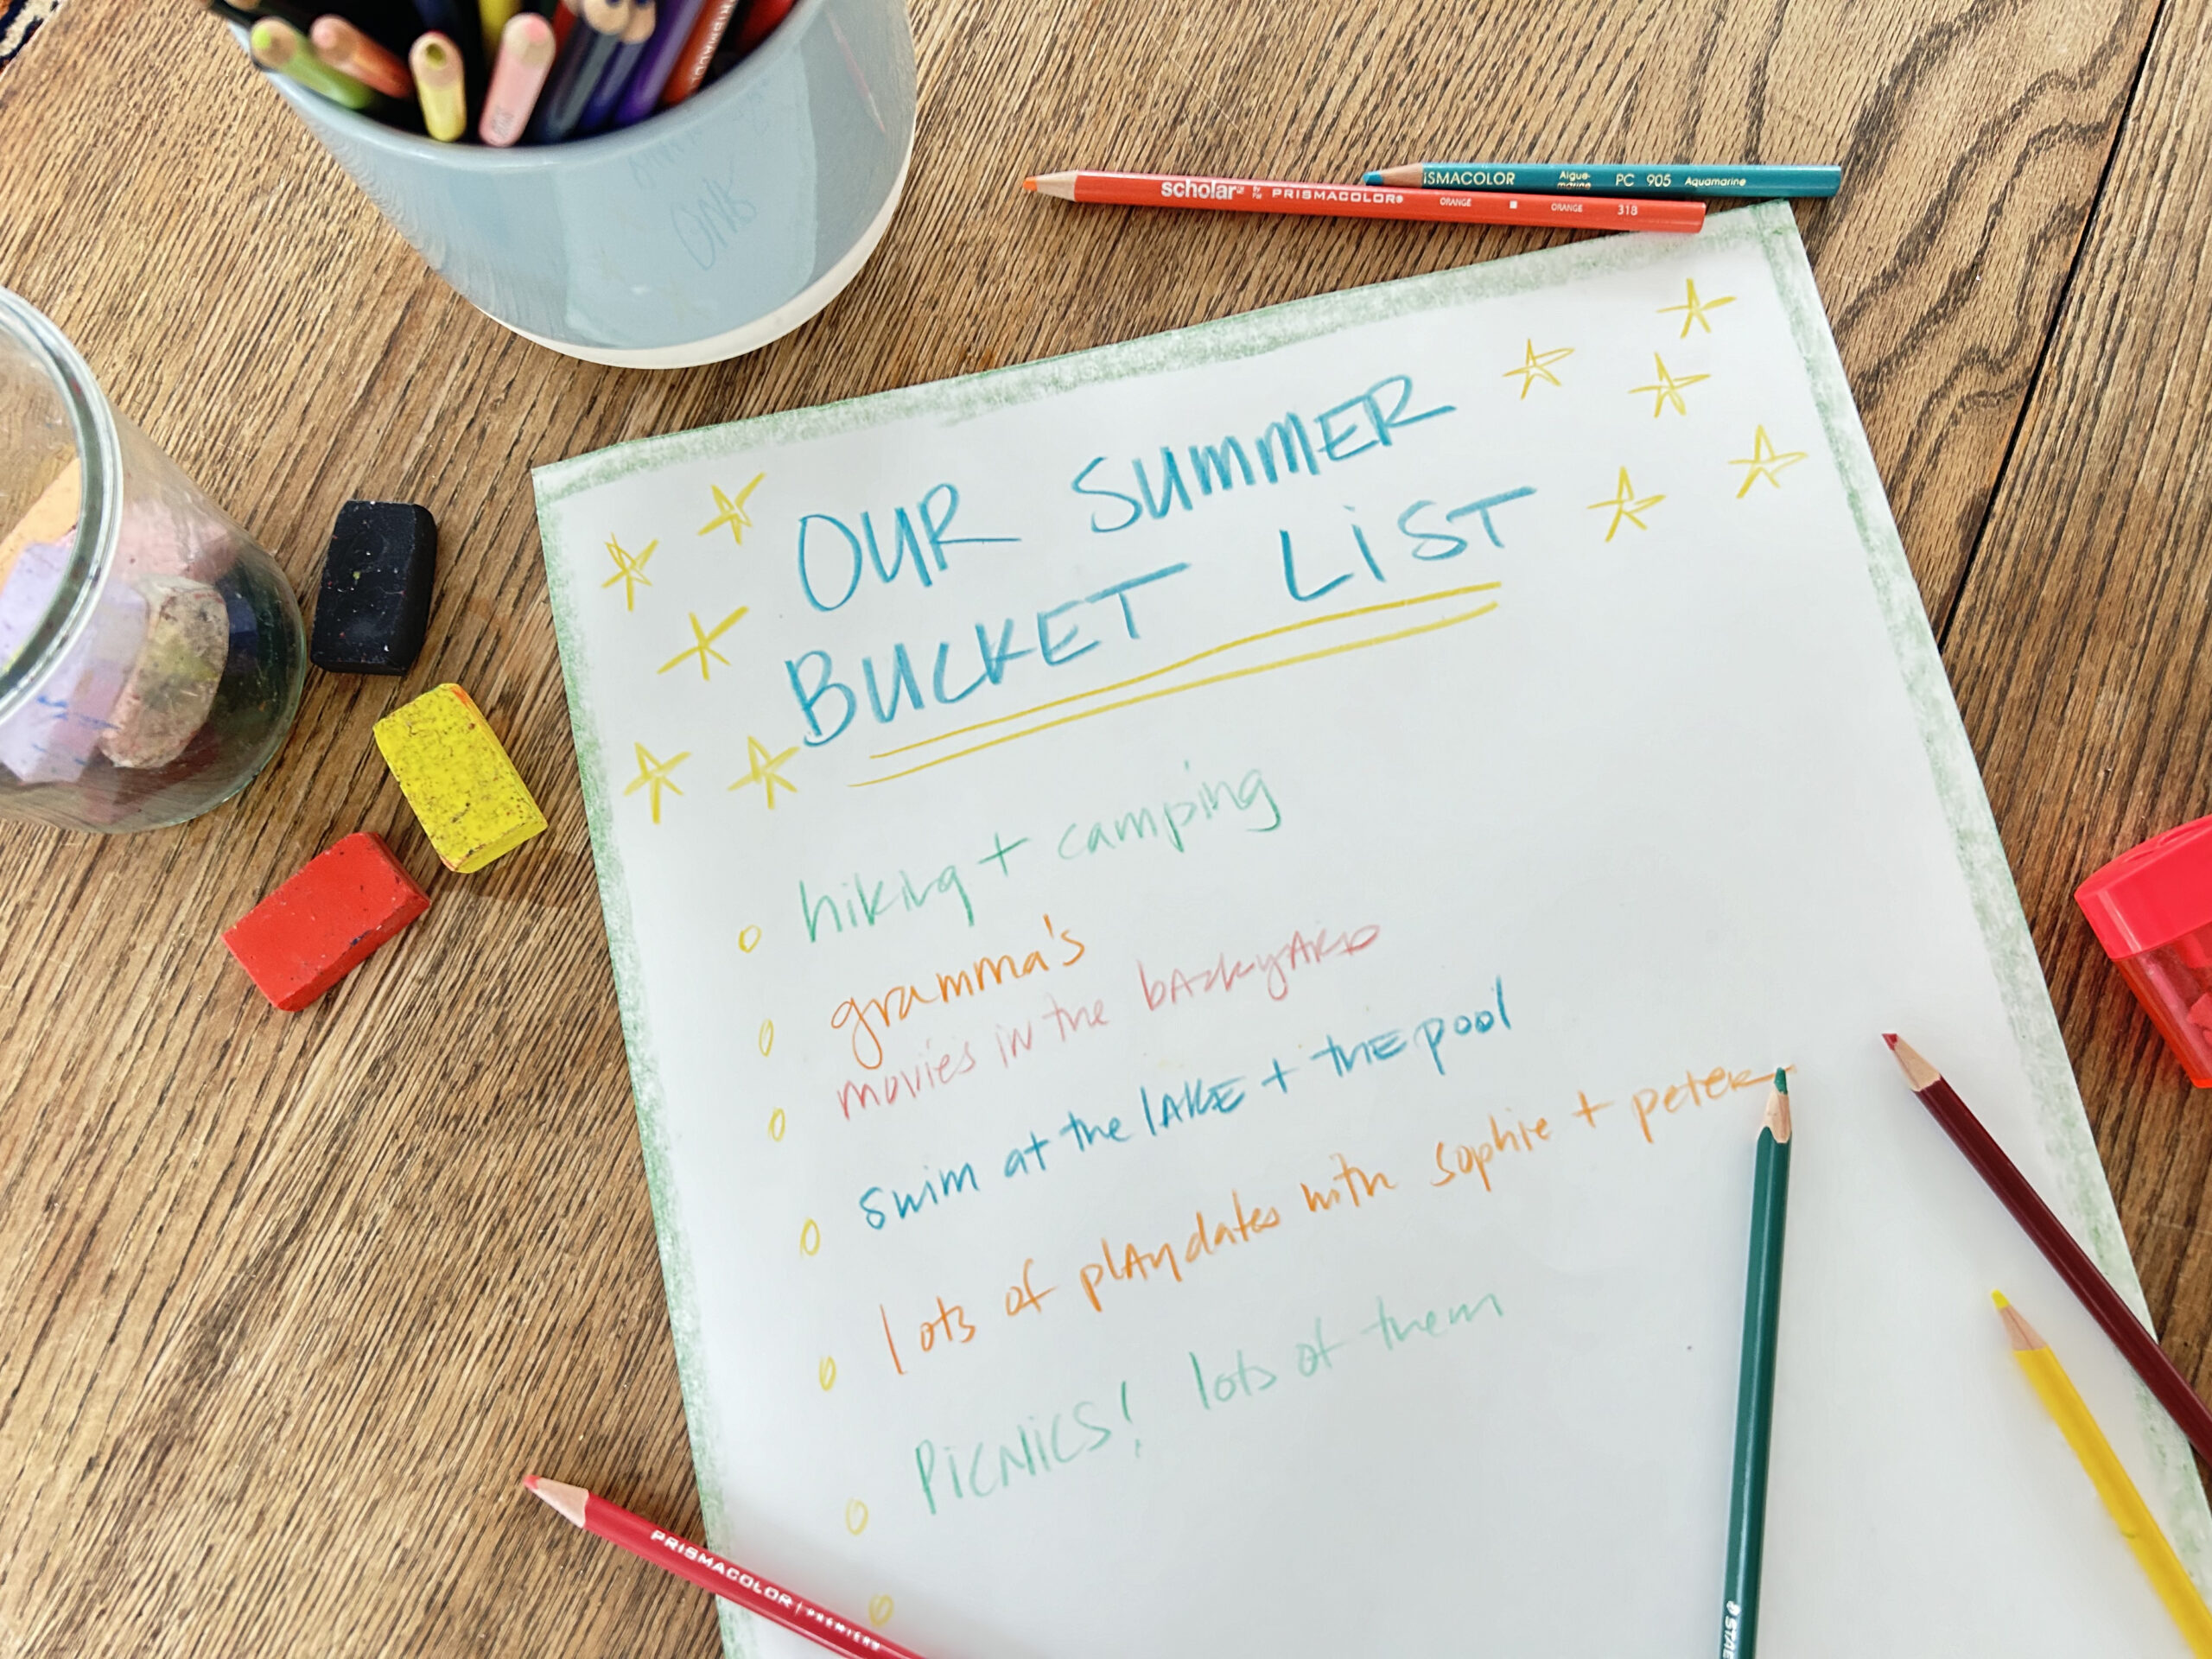 scholar™ by PRISMACOLOR®
ORANGE ORANGE 318
ISMACOLOR Aigue-marine PC 905 Aquamarine
OUR SUMMER
BUCKET LIST
hiking + camping
gramma's
movies in the backyard
swim at the lake + the pool
lots of playdates with sophie + peter
PICNICS! lots of them
PRISMACOLOR | PREMIER®